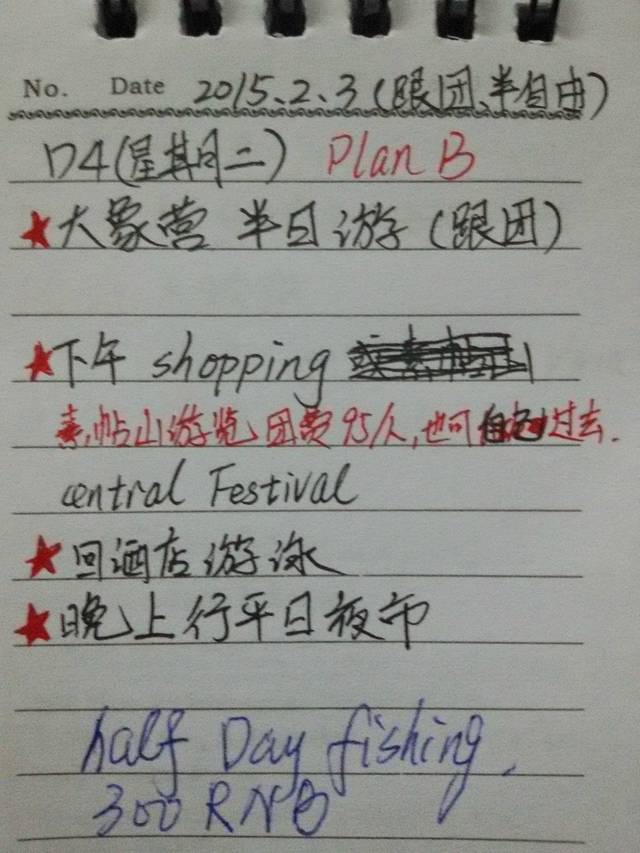 No. Date 2015.2.3(跟团、半自由)
D4(星期二) Plan B
★大象营 半日游(跟团)
★下午 shopping
素帖山游览 团费95/人,也可自己过去.
central Festival
★回酒店游泳
★晚上行平日夜市
half Day fishing.
300 RNB